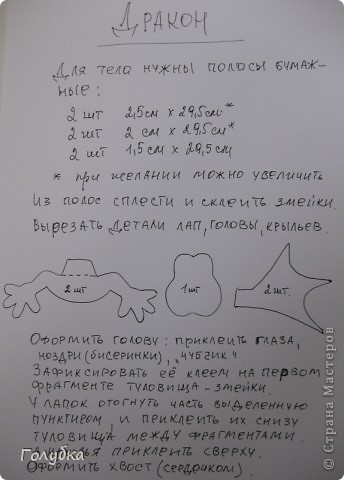 Дракон
Для тела нужны полосы бумаж-
ные:
2 шт 2,5см х 29,5см*
2 шт 2 см х 29,5см*
2 шт 1,5см х 29,5см
* при желании можно увеличить
Из полос сплести и склеить змейки.
Вырезать детали лап, головы, крыльев.
2 шт 1 шт 2 шт.
Оформить голову: приклеить глаза,
ноздри (бисеринки), "чубчик".
Зафиксировать её клеем на первом
фрагменте туловища - змейки.
У лапок отогнуть часть выделенную
пунктиром, и приклеить их снизу
туловища между фрагментами.
приклеить сверху.
Оформить хвост (сердечком).
Голубка
© Страна Мастеров